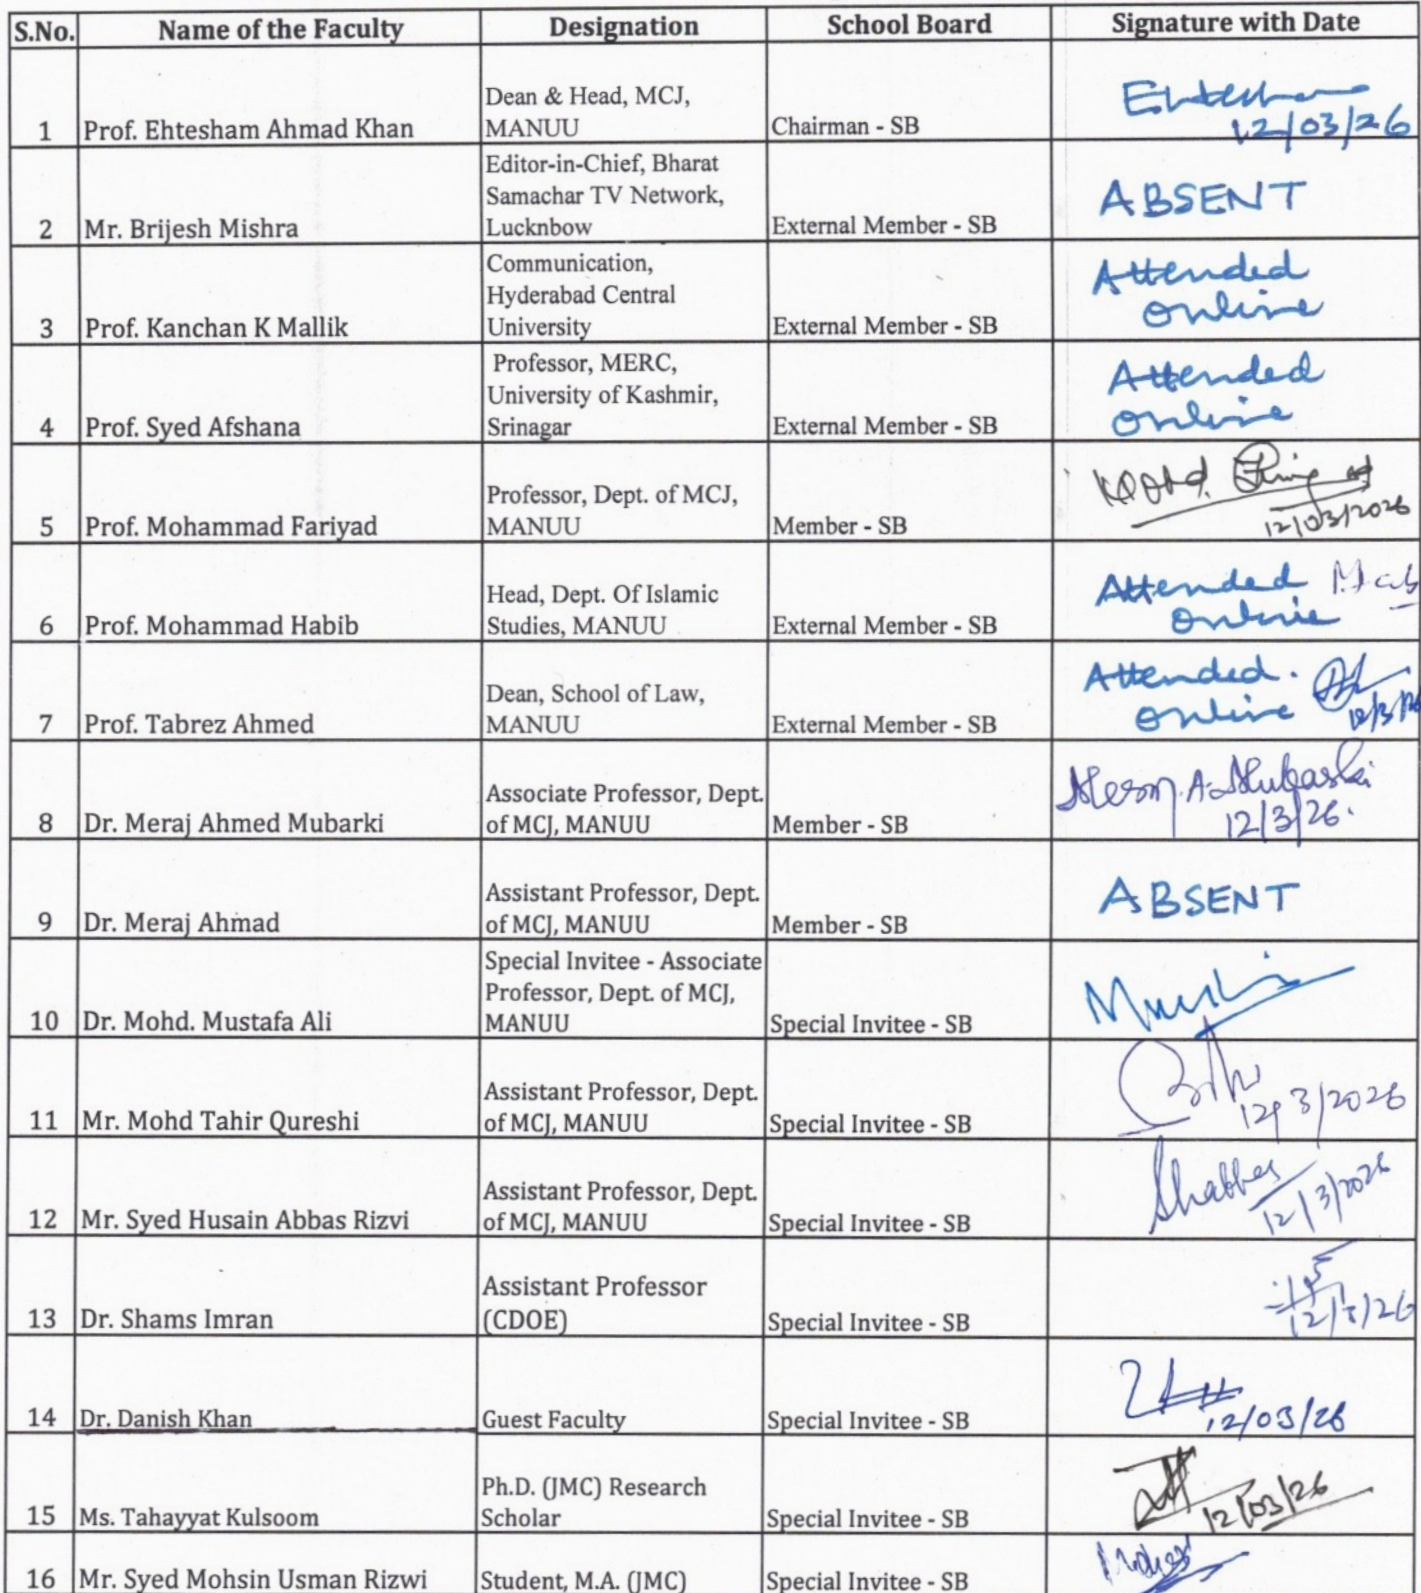 S.No. Name of the Faculty Designation School Board Signature with Date
1 Prof. Ehtesham Ahmad Khan Dean & Head, MCJ, MANUU Chairman - SB Ehtesham 12/03/26
2 Mr. Brijesh Mishra Editor-in-Chief, Bharat Samachar TV Network, Lucknbow External Member - SB ABSENT
3 Prof. Kanchan K Mallik Communication, Hyderabad Central University External Member - SB Attended online
4 Prof. Syed Afshana Professor, MERC, University of Kashmir, Srinagar External Member - SB Attended online
5 Prof. Mohammad Fariyad Professor, Dept. of MCJ, MANUU Member - SB Mohd. 12/03/2026
6 Prof. Mohammad Habib Head, Dept. Of Islamic Studies, MANUU External Member - SB Attended online
7 Prof. Tabrez Ahmed Dean, School of Law, MANUU External Member - SB Attended. online 12/3/26
8 Dr. Meraj Ahmed Mubarki Associate Professor, Dept. of MCJ, MANUU Member - SB Meraj A. Mubarki 12/3/26.
9 Dr. Meraj Ahmad Assistant Professor, Dept. of MCJ, MANUU Member - SB ABSENT
10 Dr. Mohd. Mustafa Ali Special Invitee - Associate Professor, Dept. of MCJ, MANUU Special Invitee - SB
11 Mr. Mohd Tahir Qureshi Assistant Professor, Dept. of MCJ, MANUU Special Invitee - SB 12/3/2026
12 Mr. Syed Husain Abbas Rizvi Assistant Professor, Dept. of MCJ, MANUU Special Invitee - SB 12/3/2026
13 Dr. Shams Imran Assistant Professor (CDOE) Special Invitee - SB 12/3/26
14 Dr. Danish Khan Guest Faculty Special Invitee - SB 12/03/26
15 Ms. Tahayyat Kulsoom Ph.D. (JMC) Research Scholar Special Invitee - SB 12/03/26
16 Mr. Syed Mohsin Usman Rizwi Student, M.A. (JMC) Special Invitee - SB